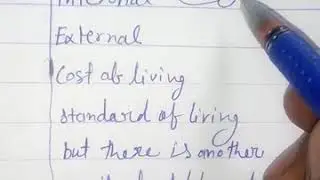 External
Cost of living
standard of living
but there is another